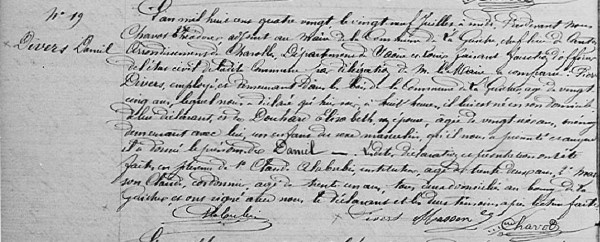 N° 19
Divers Daniel
L'an mil huit cent quatre vingt le vingt neuf Juillet à midi devant nous
Chavot Théodore adjoint au Maire de la Commune de La Guiche, chef lieu de Canton
Arrondissement de Charolles, Département de Saône et Loire faisant fonction d'officier
de l'état civil de ladite Commune par délégation de M. le Maire a comparu
Divers, employé et demeurant dans le de la Commune de La Guiche âgé de vingt
cinq ans, lequel nous a déclaré qu'hier soir, à huit heures, il lui est né en son domicile
de lui déclarant, et de Elisabeth son épouse, âgée de vingt ans, ménagère
demeurant avec lui, un enfant du sexe masculin, qu'il nous a présenté et auquel
il a donné le prénom de Daniel — Lesdites déclaration et présentation ont été
faites en présence de instituteur, âgé de trente ans, et
Claude, cordonnier, âgé de trente un ans, tous deux domiciliés au bourg de La
Guiche et ont signé avec nous le déclarant et les deux témoins, après lecture faite
Divers Masson Chavot